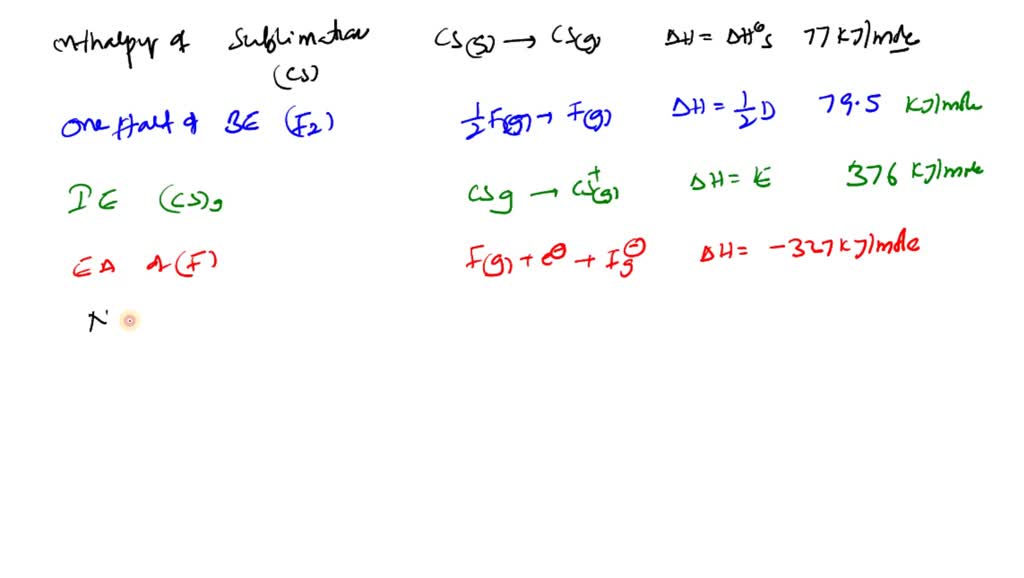 enthalpy of Sublimation Cs(s) → Cs(g) ΔH = ΔH°s 77 KJ/mole
(Cs)
One Half of BE (F2) 1/2 F(g) → F(g) ΔH = 1/2 D 79.5 KJ/mole
IE (Cs)g Csg → Cs+(g) ΔH = IE 376 KJ/mole
EA of (F) F(g) + e⊖ → Fg⊖ ΔH = -327 KJ/mole
N